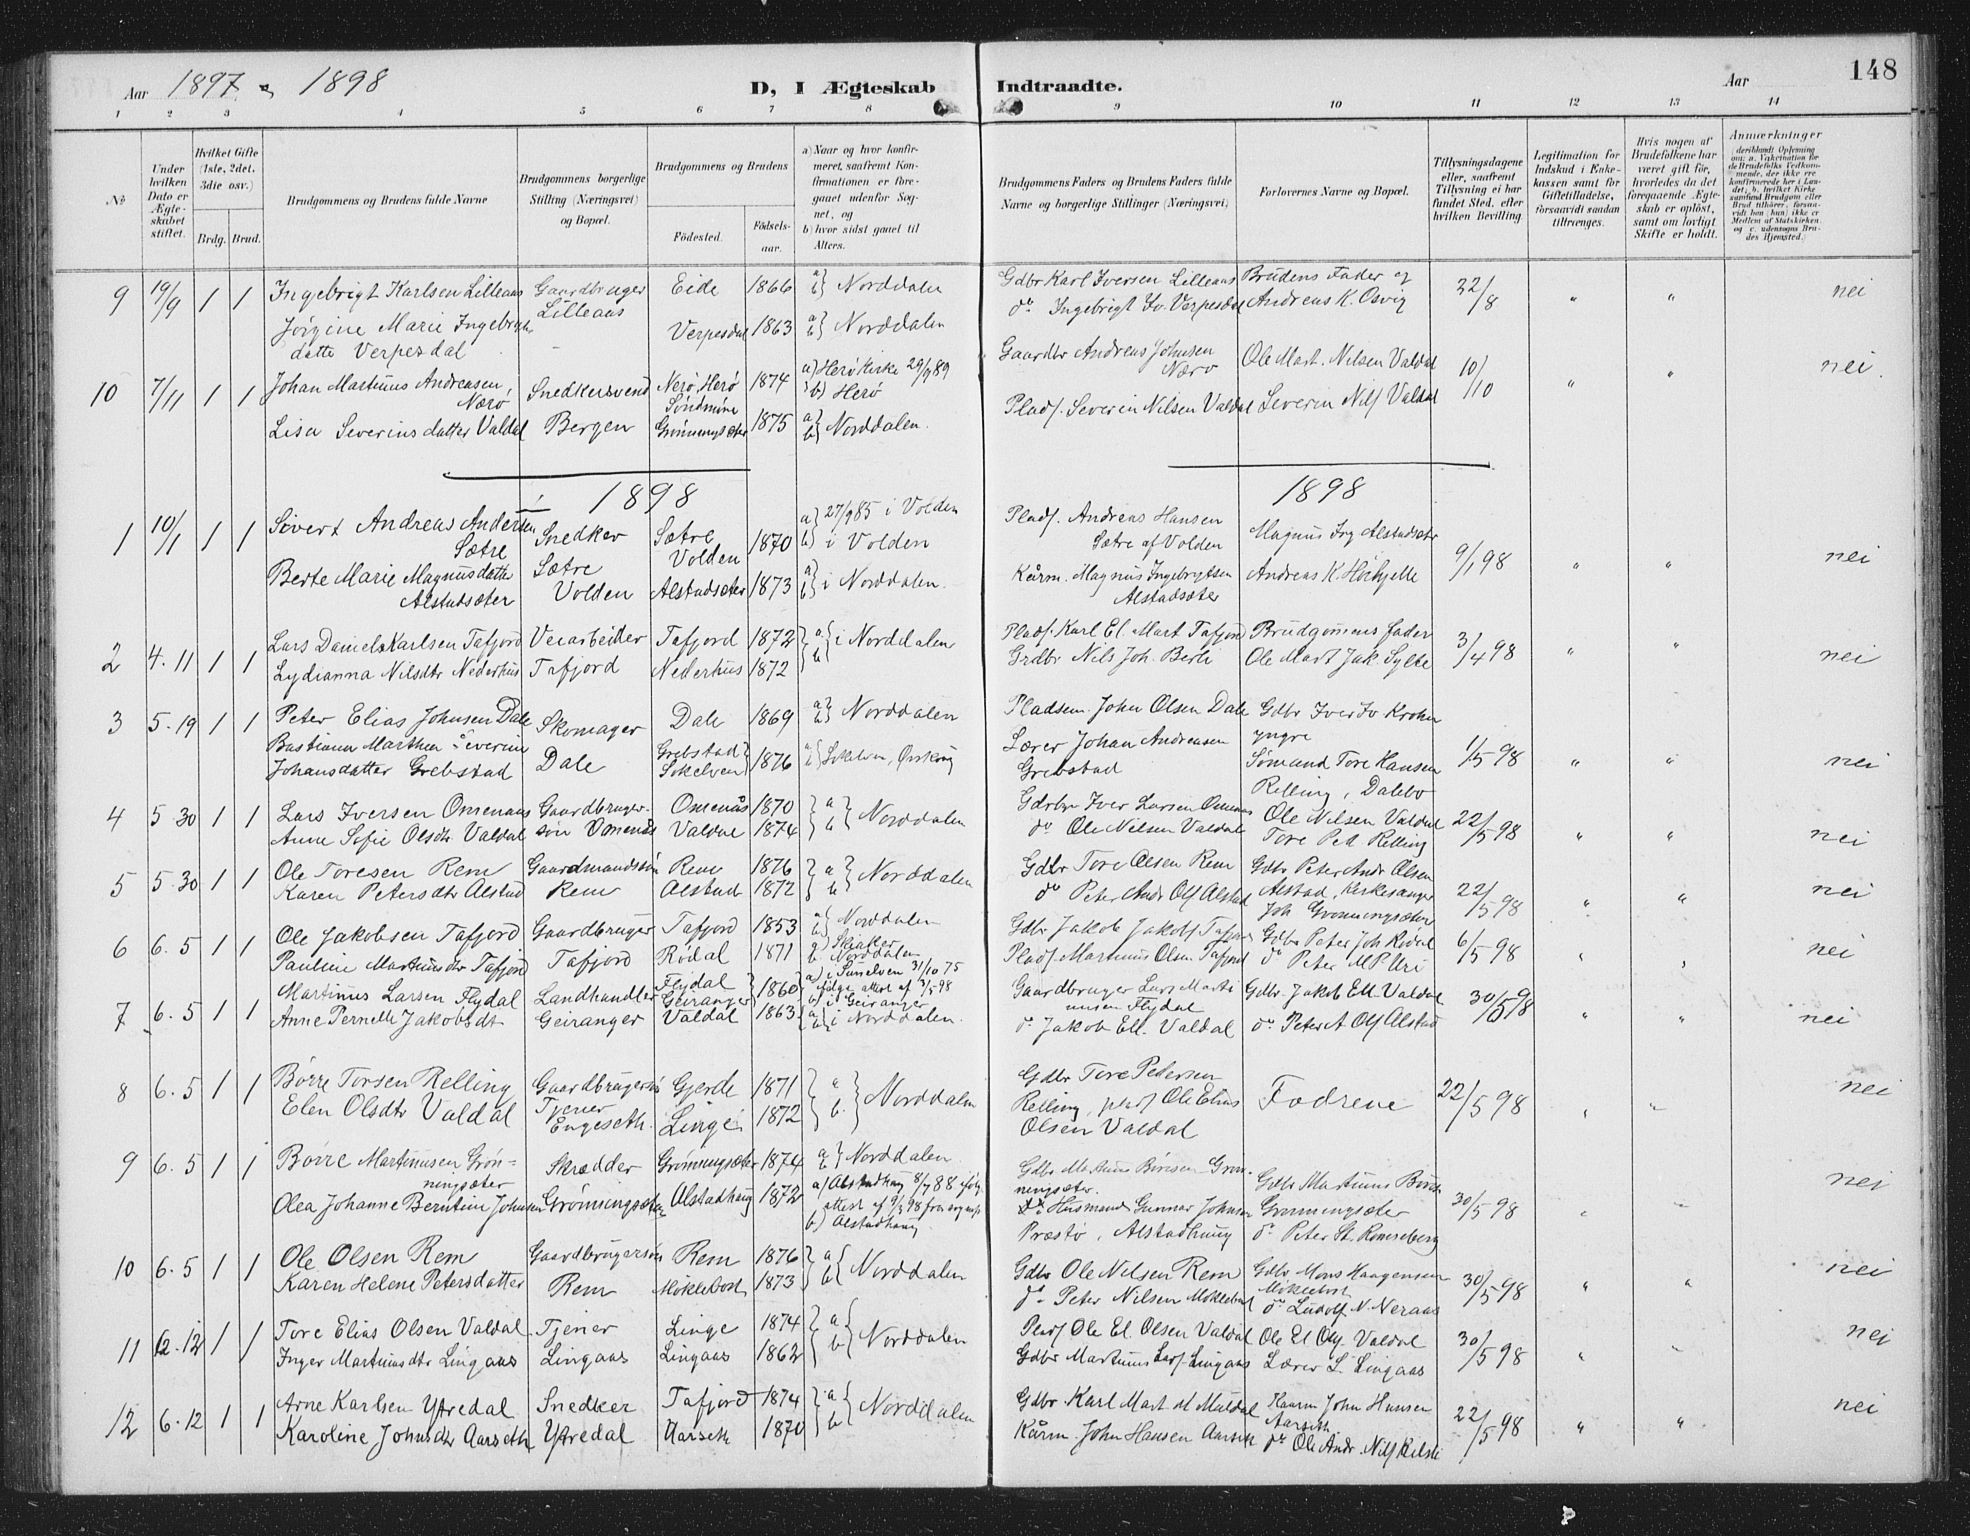 Aar 1897 & 1898
D, I Ægteskab Indtraadte.
Aar
148
1 2 3 4 5 6 7 8 9 10 11 12 13 14
№
Under hvilken Dato er Ægteskabet stiftet.
Hvilket Gifte (1ste, 2det, 3die osv.)
Brdg. Brud.
Brudgommens og Brudens fulde Navne
Brudgommens borgerlige Stilling (Næringsvei) og Bopæl.
Brudgommens og Brudens
Fødested.
Fødselsaar.
a) Naar og hvor konfirmeret, saafremt Konfirmationen er foregaaet udenfor Sognet, og
b) hvor sidst gaaet til Alters.
Brudgommens Faders og Brudens Faders fulde Navne og borgerlige Stillinger (Næringsvei)
Forlovernes Navne og Bopæl.
Tillysningsdagene eller, saafremt Tillysning ei har fundet Sted, efter hvilken Bevilling.
Legitimation for Indskud i Enkekassen samt for Giftetilladelse, forsaavidt saadan tiltrænges.
Hvis nogen af Brudefolkene har været gift før, hvorledes da det foregaaende Ægteskab er opløst, samt om lovligt Skifte er holdt.
Anmærkninger
9 19/9 1 1 Ingebrigt Karlsen Lilleaas Gaardbruger Eide 1866 a) b) Norddalen Gdbr Karl Iversen Lilleaas Brudens Fader og 22/8 " " nei
Lilleaas
Jørgine Marie Ingebrigts Verpesdal 1863 a) b) Norddalen do Ingebrigt Iv. Verpesdal Andreas K. Osvig
datte Verpesdal
10 7/11 1 1 Johan Martinus Andreasen, Snedkersvend Nerø, Herø 1874 a) Herø Kirke 29/9 89 Gaardbr Andreas Johnsen Ole Mart. Nilsen Valdal 10/10 " " nei.
Nærø Søndmøre b) Herø Nærø
Lisa Severinsdatter Valdal Bergen Grønningsæter 1875 a) b) Norddalen. Pladf. Severin Nilsen Valdal Severin Nilf Valdal
1898 1898
1 10/1 1 1 Sivert Andreas Andersen Snedker Sætre 1870 a) 27/9 85 i Volden Pladf. Andreas Hansen Magnus Ing Alstadsæter 9/1 98 " " nei
Sætre Volden b) i Volden Sætre af Volden
Berte Marie Magnusdatte Sætre Alstadsæter 1873 a) b) i Norddalen. Kårm. Magnus Ingebrigtsen Andreas K. Hoihjelle
Alstadsæter Volden Alstadsæter
2 4. 11 1 1 Lars Daniel Karlsen Tafjord Veiarbeider Tafjord 1872 a b i Norddalen Pladf. Karl El. Mart Tafjord Brudgommens fader 3/4 98 " " nei
Lydianna Nilsdtr Nederhus Tafjord Nederhus 1872 Grdbr Nils Joh. Berli Ole Mart Jak. Sylte
3 5. 19 1 1 Peter Elias Johnsen Dale Skomager Dale 1869 a) b) Norddalen Pladsem. John Olsen Dale Gdbr Iver Iv Krohn 1/5 98 " " nei
yngre
Bastiana Marthea Severine Dale Grebstad 1876 Lærer Johan Andreasen Sømand Tore Hansen
Johansdatter Grebstad Søkelven a) b) Søkelven, Ørskog Grebstad Relling, Dalebo
4 5 30 1 1 Lars Iversen Omenaas Gaardbruger- Omenås 1870 a b Norddalen Gdrbr Iver Larsen Omenaas Ole Nilsen Valdal 22/5 98 " " nei
Anne Sofie Olsdtr Valdal søn Omenås Valdal 1874 do Ole Nilsen Valdal Tore Ped Relling
5 5 30 1 1 Ole Toresen Rem Gaardmandssøn Rem 1876 a b Norddalen Gdbr Tore Olsen Rem Gdbr Peter Andr Olsen 22/5 98 " " nei
Karen Petersdtr Alstad Rem Alstad 1872 do Peter Andr Olf Alstad Alstad, Kirkesanger
Joh Grønningsæter
6 6. 5 1 1 Ole Jakobsen Tafjord Gaardbruger Tafjord 1853 a) b) Norddalen Gdbr Jakob Jakobf Tafjord Gdbr Peter Joh Rødal 6/5 98 " " nei
Pauline Martinusdtr Tafjord Tafjord Rødal 1871 a) Skiaker b) Norddalen Pladf. Martinus Olsen Tafjord do Peter M P. Uri
7 6. 5 1 1 Martinus Larsen Flydal Landhandler Flydal 1860 a) i Sunelven 31/10 75 Gaardbruger Lars Marti Gdbr. Jakob Ell. Valdal 30/5 98 " " nei
Geiranger ifølge attest af 3/5 98 nusen Flydal
b) i Geiranger
Anne Pernelle Jakobsdt Geiranger Valdal 1863 a) b) i Norddalen. do Jakob Ell. Valdal do Peter A Olf Alstad
8 6. 5 1 1 Børre Torsen Relling Gaardbrugersøn Gjerde 1871 a b Norddalen Gdbr Tore Pedersen Fodrene 22/5 98 " " nei
Elen Olsdtr Valdal Tjener Linge 1872 Relling, pladf Ole Elius
Engeseth. Olsen Valdal
9 6. 5 1 1 Børre Martinusen Grøn- Skrædder Grønningsæter 1874 a) b) Norddalen Gdbr Martinus Børesen Grøn- Gdbr Martinus Børe 30/5 98 " " nei
ningsæter ningsæter.
Olea Johanne Berntine Johnsen Grønningsæter Alstadhaug 1872 a) Alstadhaug 8/7 88 ifølg do Husmand Gunnar Johnsen Grønningsæter
attest af 9/3 98 fra sognep
b) Alstadhaug Præstø, Alstadhaug do Peter St. Romseberg
10 6. 5 1 1 Ole Olsen Rem Gaardbrugersøn Rem 1876 a b Norddalen Gdbr Ole Nilsen Rem Gdbr Mons Haagensen 30/5 98 " " nei
Møklebost
Karen Helene Petersdatter Rem Møklebost 1873 do Peter Nilsen Møklebust do Ludolf N. Neraas
11 12. 12 1 1 Tore Elias Olsen Valdal Tjener Linge 1874 a b Norddalen Pladf Ole El. Olsen Valdal Ole El Olf Valdal 30/5 98 " " nei
Inger Martinusdtr Lingaas Lingaas Lingaas 1862 Gdbr Martinus Larf. Lingaas Lærer L. Lingaas
12 6. 12 1 1 Arne Karlsen Ytredal Snedker Tafjord 1874 a b Norddalen Gdbr. Karl Mart M Muldal Kaarm John Hansen 22/5 98 " " nei
Aarseth
Karoline Johnsdtr Aarseth Ytredal Aarseth 1870 Kårm. John Hansen Aarseth do Ole Andr. Nilf Relling